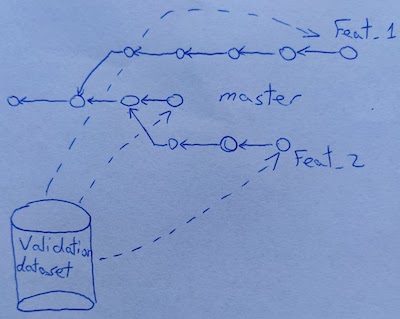 Feat_1
master
Feat_2
Validation
dataset